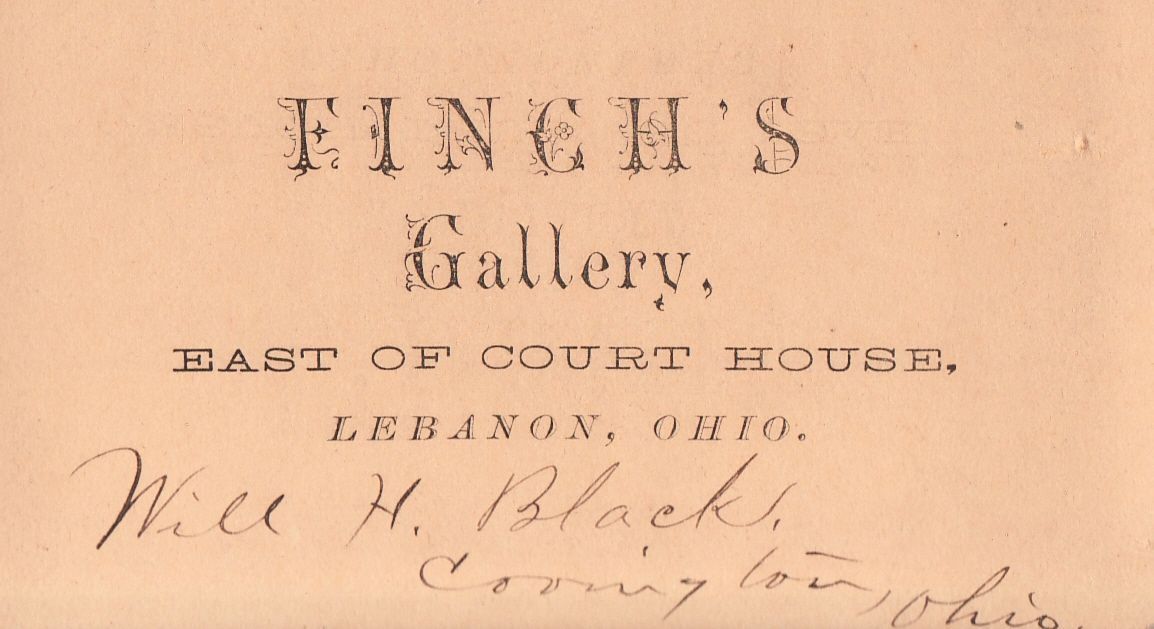 FINCH'S
Gallery,
EAST OF COURT HOUSE,
LEBANON, OHIO.
Will H. Black.
Covington, Ohio.